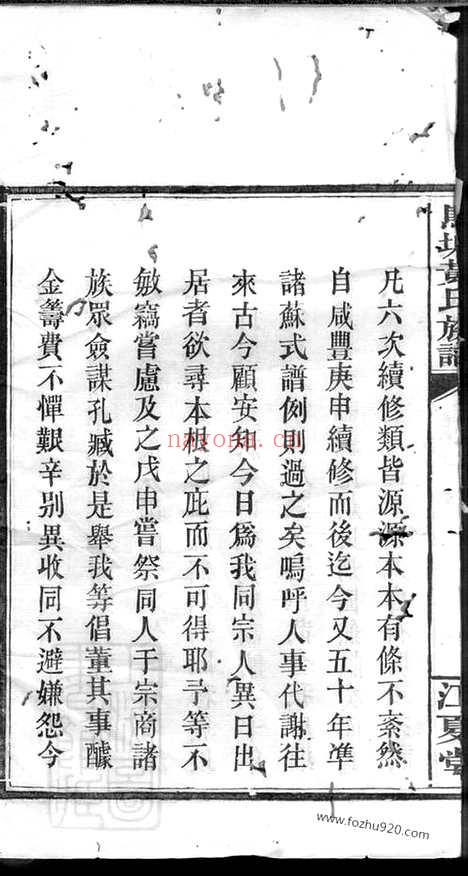 凡六次續修類皆源源本本有條不紊然
自咸豐庚申續修而後迄今又五十年準
諸蘇式譜例則過之矣嗚呼人事代謝往
來古今顧安知今日為我同宗人異日出
居者欲尋本根之庇而不可得耶予等不
敏竊嘗慮及之戊申嘗祭同人于宗商諸
族眾僉謀孔臧於是舉我等倡董其事醵
金籌費不憚艱辛别異收同不避嫌怨今
黃氏族譜
江夏堂
nayona.cn
www.fozhu920.com